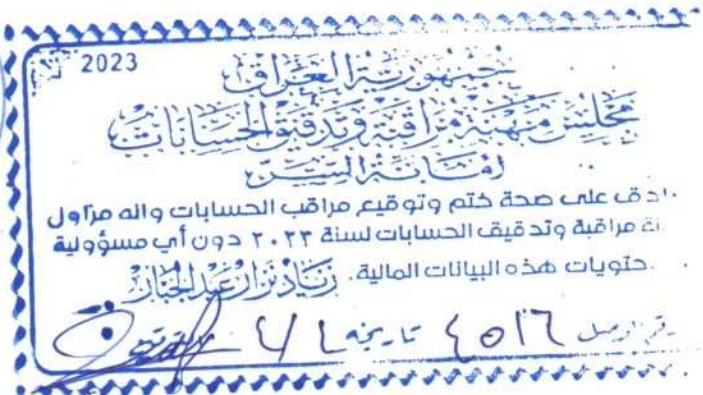 2023
جمهورية العراق
مجلس مهنة مراقبة وتدقيق الحسابات
أمانة السر
ادق على صحة ختم وتوقيع مراقب الحسابات وانه مزاول
نة مراقبة وتدقيق الحسابات لسنة ٢٠٢٣ دون أي مسؤولية
حتويات هذه البيانات المالية. زياد نزار عبد الجبار
رقم الوصل ٤٥١٦ تاريخه توقيع